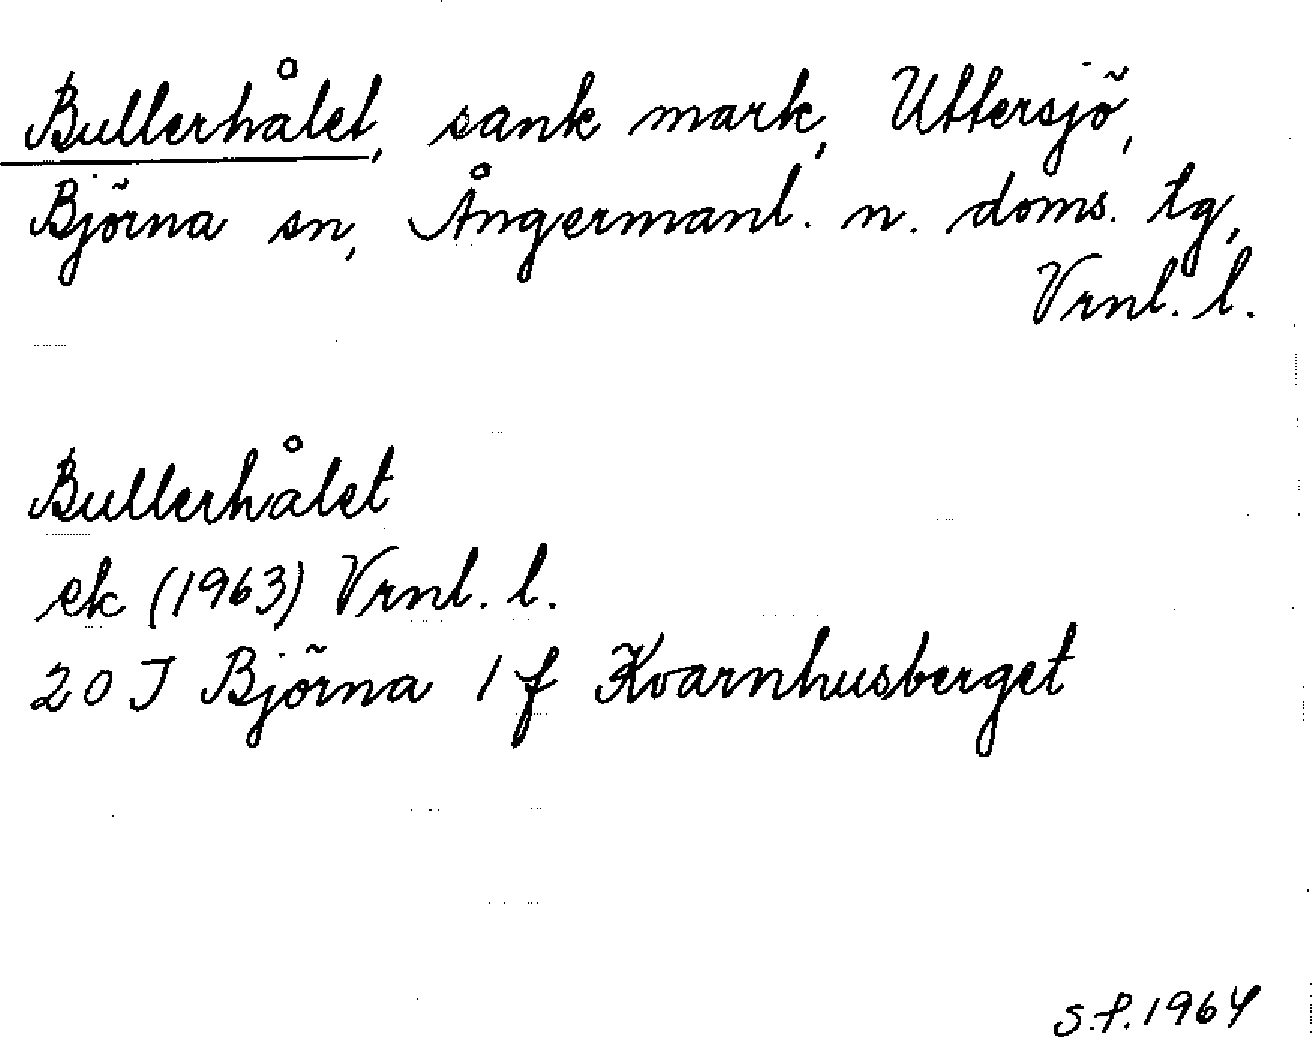 Bullerhålet, sank mark, Uttersjö,
Björna sn, Ångermanl. n. doms. tg,
Vrnl. l.
Bullerhålet
ek (1963) Vrnl. l.
20 J Björna 1 f Kvarnhusberget
S.f. 1964